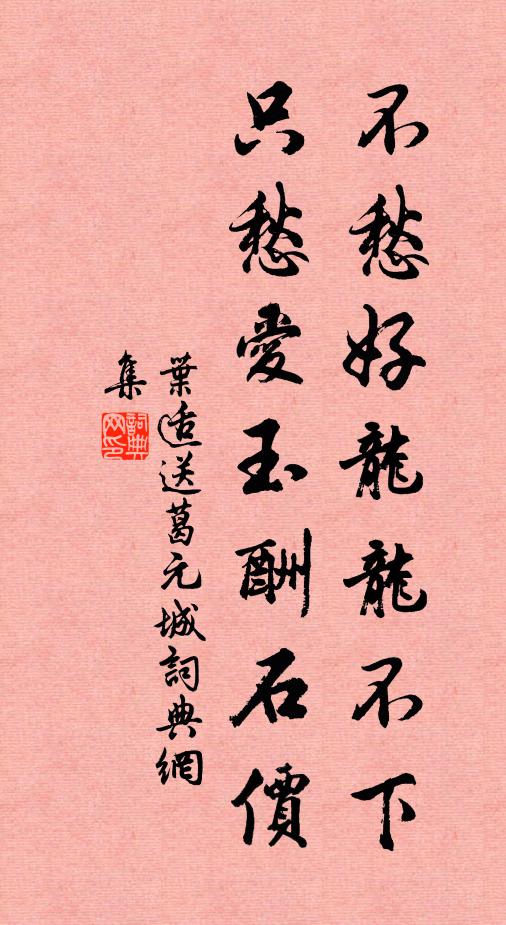 不愁好龍龍不下
只愁愛玉酬石價
葉适送葛元城詞典網
集
詞典網印